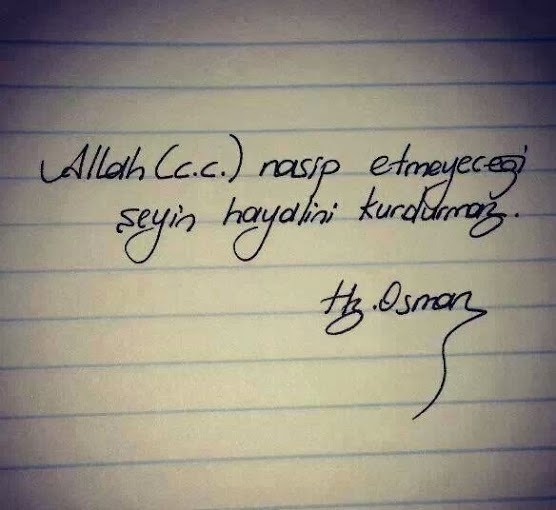 Allah (c.c.) nasip etmeyeceği
şeyin hayalini kurdurmaz.
Hz. Osman